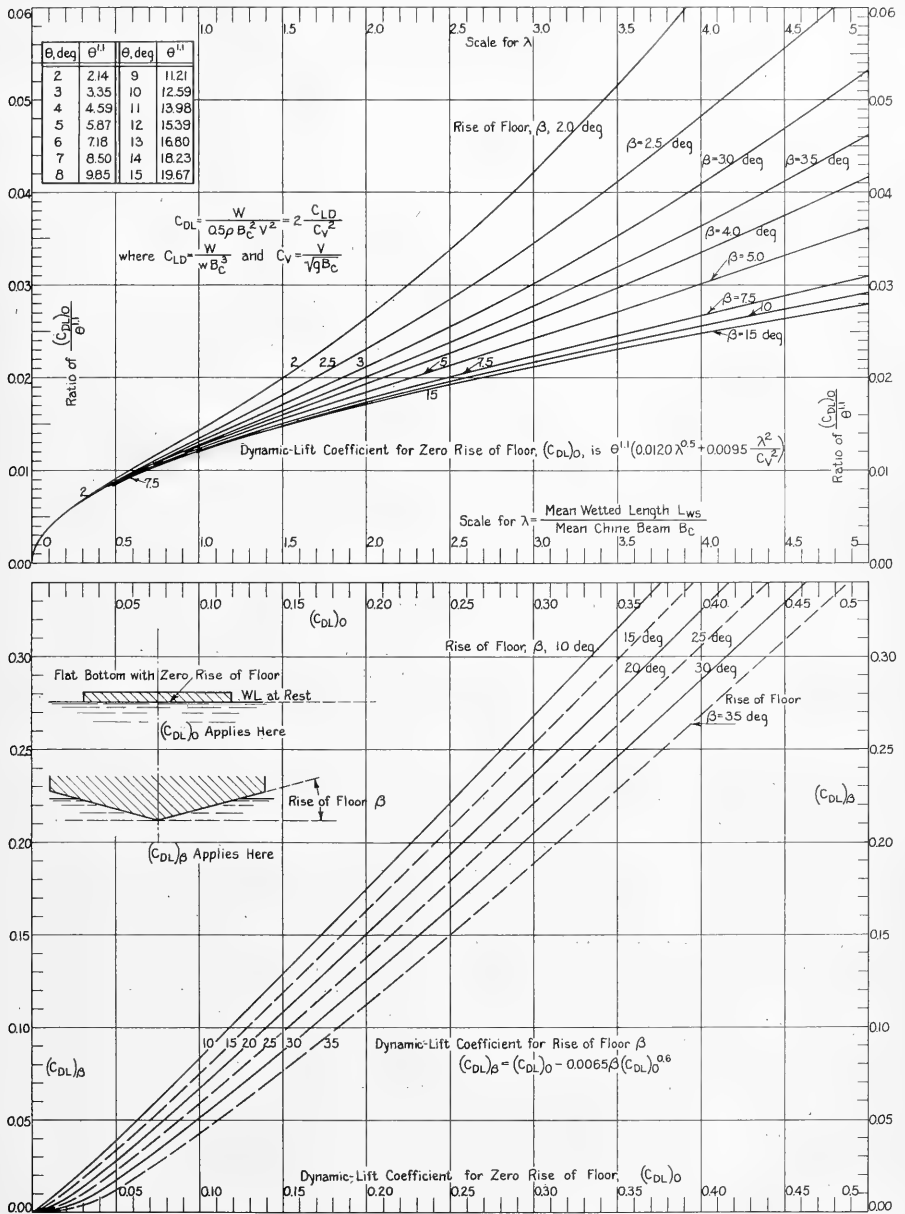 0.06
0 0.5 1.0 1.5 2.0 2.5 3.0 3.5 4.0 4.5 5.0
0.06
Scale for λ
θ, deg θ^1.1 θ, deg θ^1.1
2 2.14 9 11.21
3 3.35 10 12.59
4 4.59 11 13.98
5 5.87 12 15.39
6 7.18 13 16.80
7 8.50 14 18.23
8 9.85 15 19.67
0.05
0.05
Rise of Floor, β, 2.0 deg
β=2.5 deg
β=3.0 deg
β=3.5 deg
0.04
0.04
C_DL = W / 0.5ρ B_C^2 V^2 = 2 C_LD / C_V^2
where C_LD = W / wB_C^3 and C_V = V / √gB_C
β=4.0 deg
β=5.0
0.03
0.03
β=7.5
10
β=15 deg
Ratio of (C_DL)_0 / θ^1.1
2 2.5 3 5 7.5
15
0.02
0.02
Ratio of (C_DL)_0 / θ^1.1
Dynamic-Lift Coefficient for Zero Rise of Floor, (C_DL)_0, is θ^1.1 (0.0120 λ^0.5 + 0.0095 λ^2 / C_V^2)
0.01
0.01
2
7.5
Scale for λ = Mean Wetted Length L_WS / Mean Chine Beam B_C
0.00
0 0.5 1.0 1.5 2.0 2.5 3.0 3.5 4.0 4.5 5.0
0.00
0.05 0.10 0.15 0.20 0.25 0.30 0.35 0.40 0.45 0.5
(C_DL)_0
Rise of Floor, β, 10 deg
15 deg
25 deg
20 deg
30 deg
0.30
0.30
Flat Bottom with Zero Rise of Floor
WL at Rest
Rise of Floor
β=35 deg
(C_DL)_0 Applies Here
0.25
0.25
Rise of Floor β
(C_DL)_β
0.20
0.20
(C_DL)_β Applies Here
0.15
0.15
0.10
0.10
10 15 20 25 30 35
Dynamic-Lift Coefficient for Rise of Floor β
(C_DL)_β = (C_DL)_0 – 0.0065β(C_DL)_0^0.6
(C_DL)_β
0.05
0.05
Dynamic-Lift Coefficient for Zero Rise of Floor, (C_DL)_0
0.00
0.05 0.10 0.15 0.20 0.25 0.30 0.35 0.40 0.45 0.5
0.00